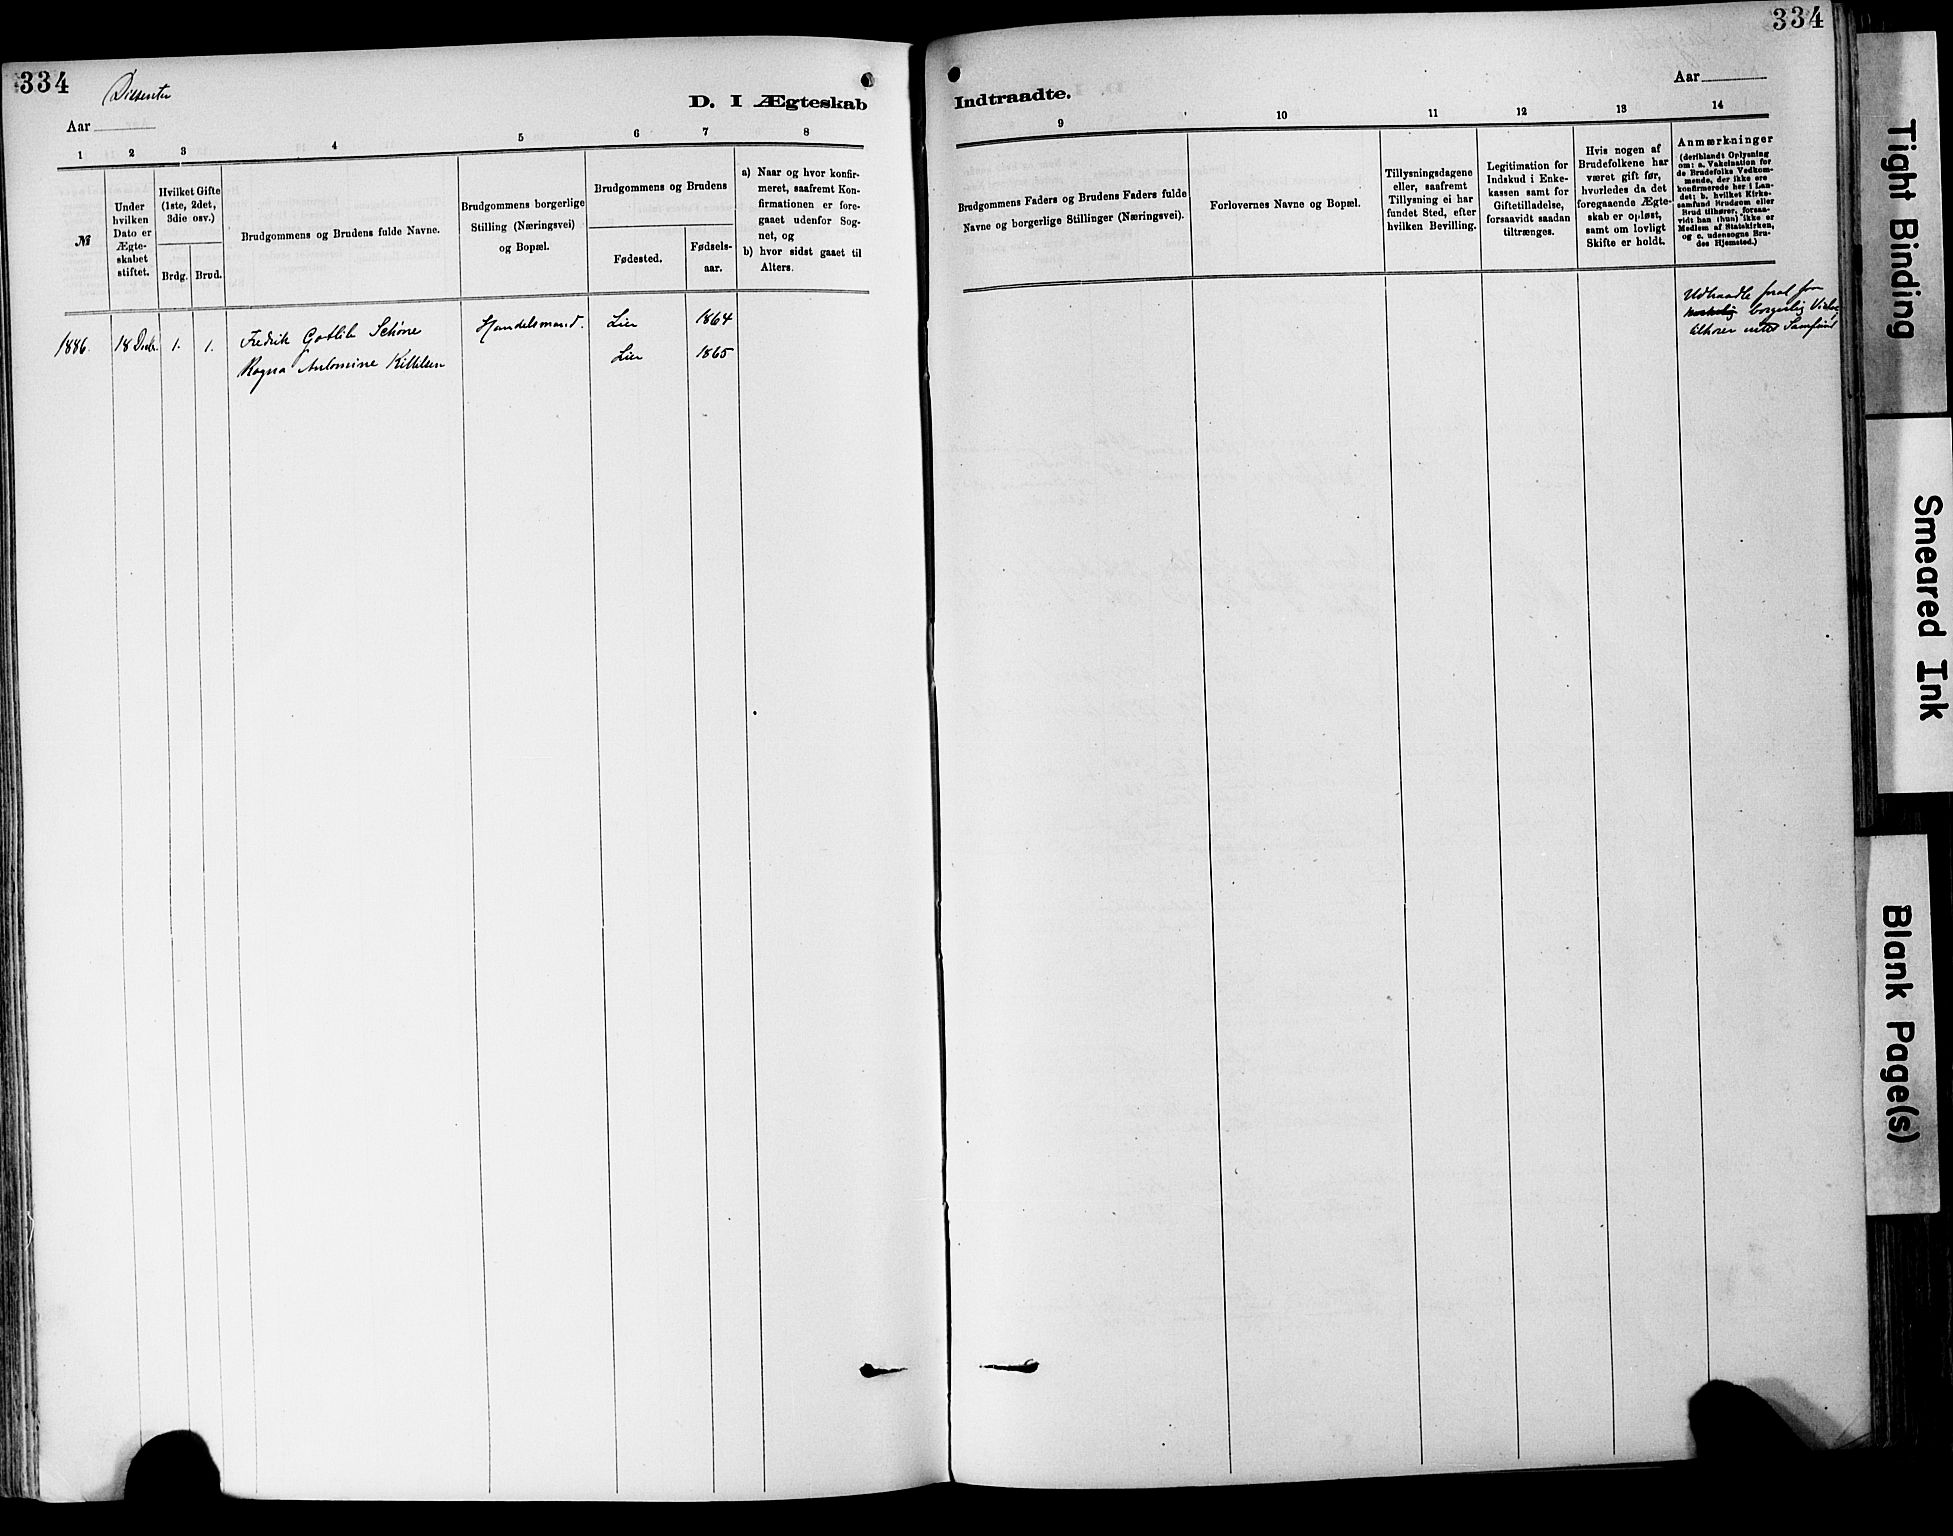 334
Dissenter
Aar
D. I Ægteskab
1 2 3 4 5 6 7 8
№
Under
hvilken
Dato er
Ægte-
skabet
stiftet.
Hvilket Gifte
(1ste, 2det,
3die osv.)
Brdg. Brud.
Brudgommens og Brudens fulde Navne.
Brudgommens borgerlige
Stilling (Næringsvei)
og Bopæl.
Brudgommens og Brudens
Fødested.
Fødsels-
aar.
a) Naar og hvor konfir-
meret, saafremt Kon-
firmationen er fore-
gaaet udenfor Sog-
net, og
b) hvor sidst gaaet til
Alters.
1886. 18 Decbr. 1. 1. Fredrik Gotlib Schøne Handelsmand. Lier 1864
Ragna Antomine Killelsen Lier 1865
334
Aar
Indtraadte.
9 10 11 12 13 14
Brudgommens Faders og Brudens Faders fulde
Navne og borgerlige Stillinger (Næringsvei).
Forlovernes Navne og Bopæl.
Tillysningsdagene
eller, saafremt
Tillysning ei har
fundet Sted, efter
hvilken Bevilling.
Legitimation for
Indskud i Enke-
kassen samt for
Giftetilladelse,
forsaavidt saadan
tiltrænges.
Hvis nogen af
Brudefolkene har
været gift før,
hvorledes da det
foregaaende Ægte-
skab er opløst,
samt om lovligt
Skifte er holdt.
Anmærkninger
(deriblandt Oplysning
om: a. Vakcination for
de Brudefolks Vedkom-
mende, der ikke ere
konfirmerede her i Lan-
det; b. hvilket Kirke-
samfund Brudgom eller
Brud tilhører, forsaa-
vidt han (hun) ikke er
Medlem af Statskirken,
og c. udensogns Bru-
des Hjemsted.)
Udtraadte
borgerlig
tilhører Samfund
Tight Binding
Smeared Ink
Blank Page(s)